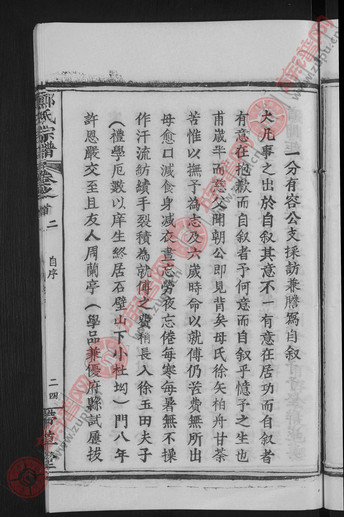 一分有容公支採訪兼謄寫自叙
大凡事之出於自叙其意不一有意在居功而自叙者
有意在抱歉而自叙者予何意而自叙乎憶予之生也
甫歲半而慈父開朝公即見背矣母氏徐矢柏舟甘荼
苦惟以撫予為志及六歲時命以就傅仍苦費無所出
母愈口減食身減衣晝忘勞夜忘倦每寒每暑無不操
作汗流紡績手裂積為就傅之費稍長入徐玉田夫子
(禮學厄數以庠生終居石壁山下小杜坳)門八年
許恩嚴交至且友人周蘭亭(學品兼優府縣試屢拔
鄭氏宗譜
卷之首二
自序
二四